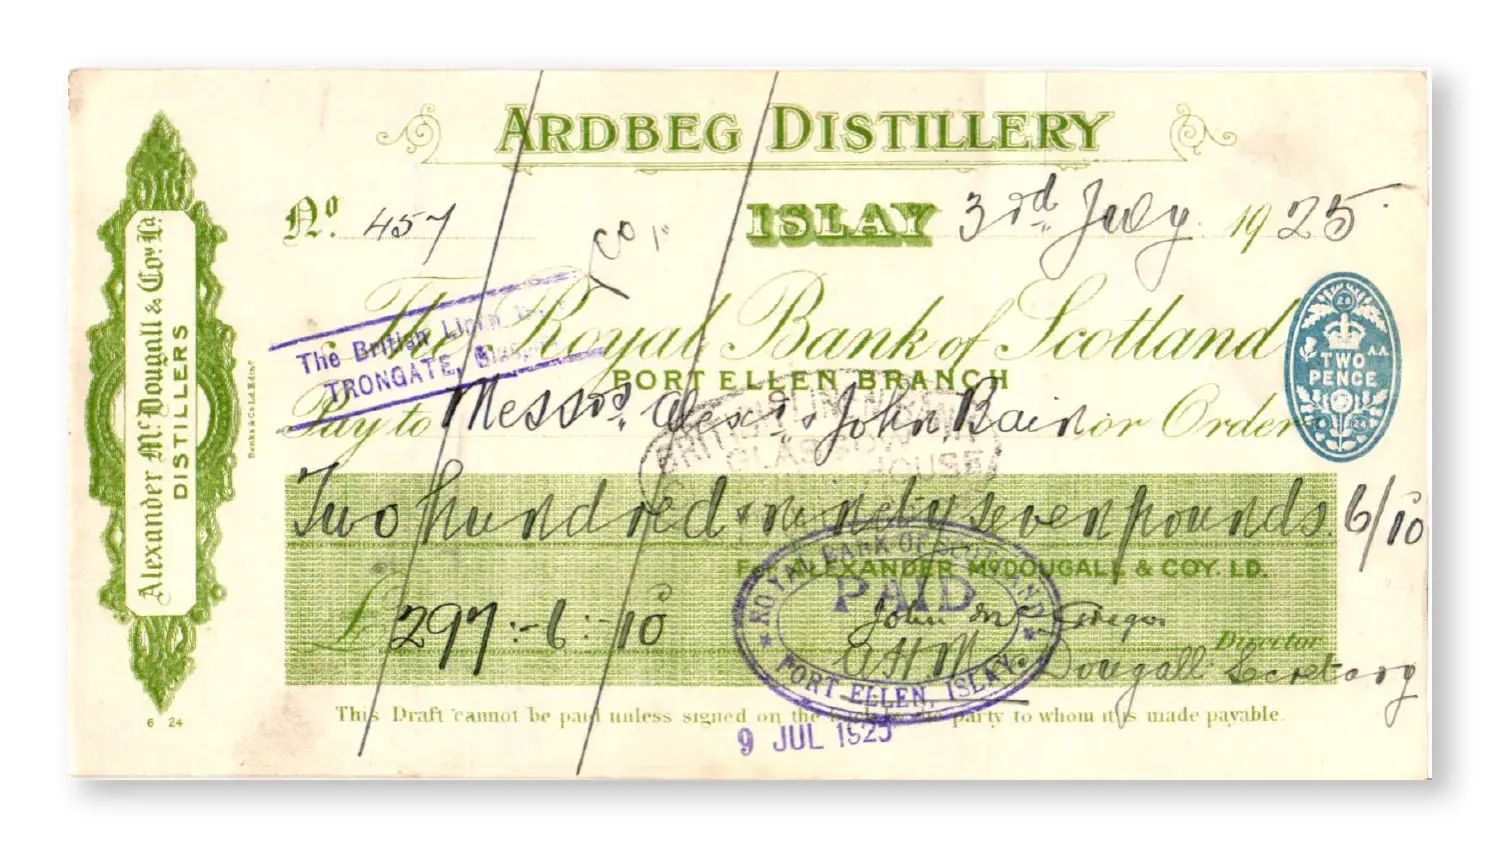 ARDBEG DISTILLERY
Nº. 457
ISLAY 3rd July 1925
& Co
The Royal Bank of Scotland
The British Linen
TRONGATE,
PORT ELLEN BRANCH
Pay to Messrs. Alexr. & John Bain or Order
BRITISH LINEN
GLASGOW
HOUSE
Two hundred & ninety seven pounds. 6/10
FOR ALEXANDER McDOUGALL & COY. LD.
£ 297:-6:-10
John McGregor Director
A H McDougall Secretary
This Draft cannot be paid unless signed on the back by the party to whom it is made payable.
ROYAL BANK OF SCOTLAND
PAID
PORT ELLEN, ISLAY.
9 JUL 1925
Alexander McDougall & Coy. Ld.
DISTILLERS
6 24
Banks & Co Ld. Edinr
TWO
PENCE
A A